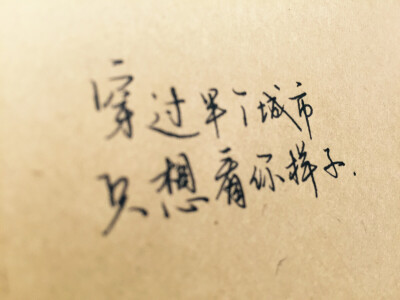 穿过半个城市
只想看你样子.